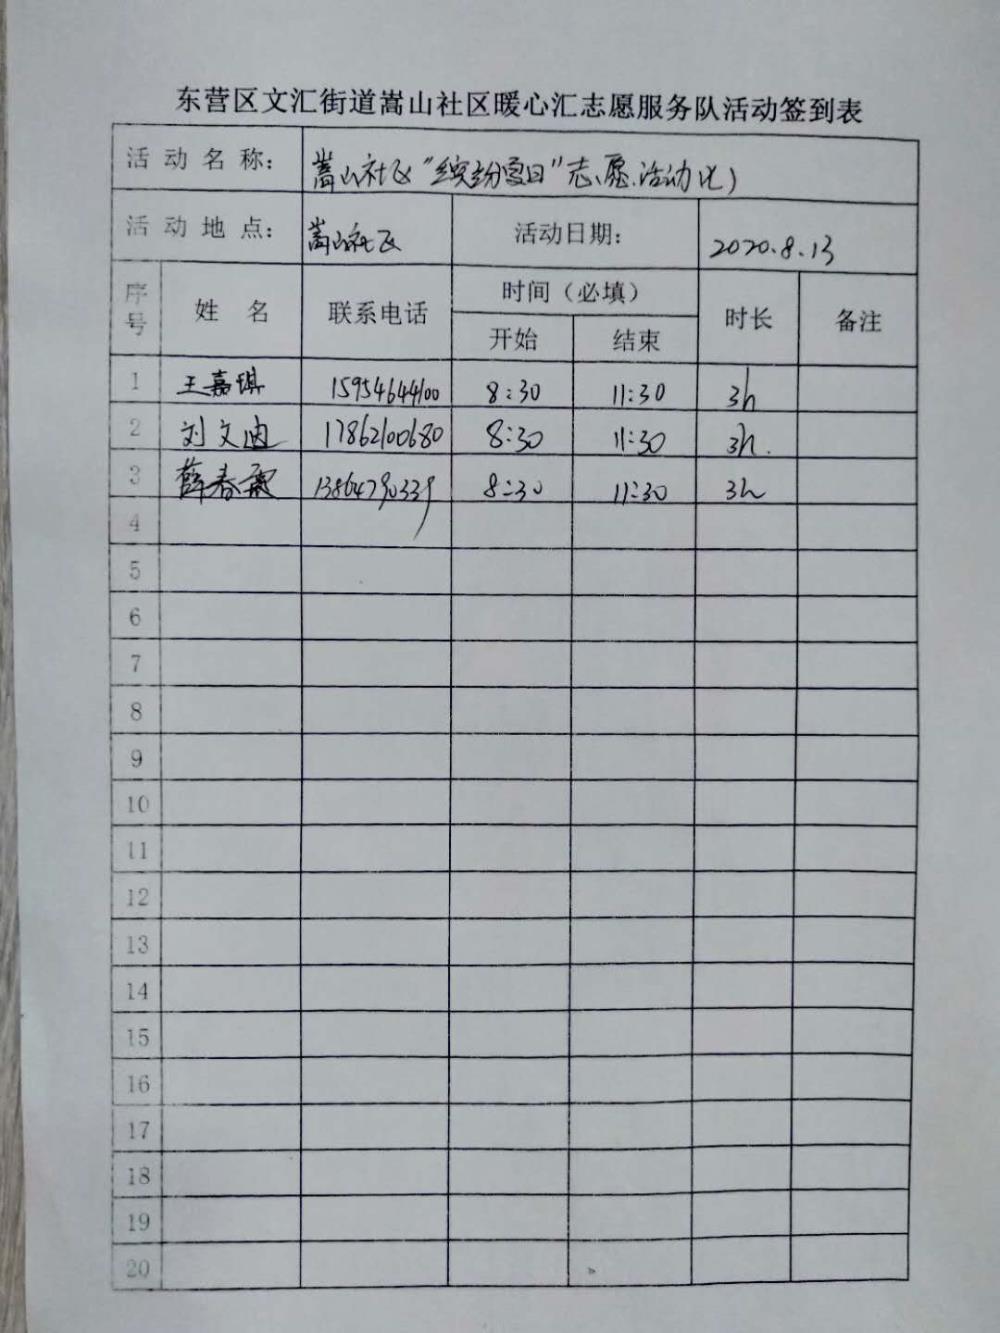 东营区文汇街道嵩山社区暖心汇志愿服务队活动签到表
活动名称： 嵩山社区“缤纷夏日”志愿活动（七）
活动地点： 嵩山社区 活动日期： 2020.8.13
序号 姓名 联系电话 时间（必填） 时长 备注
开始 结束
1 王嘉琪 15954644100 8:30 11:30 3h
2 刘文迪 17862100680 8:30 11:30 3h.
3 薛春霞 13864790339 8:30 11:30 3h
4
5
6
7
8
9
10
11
12
13
14
15
16
17
18
19
20